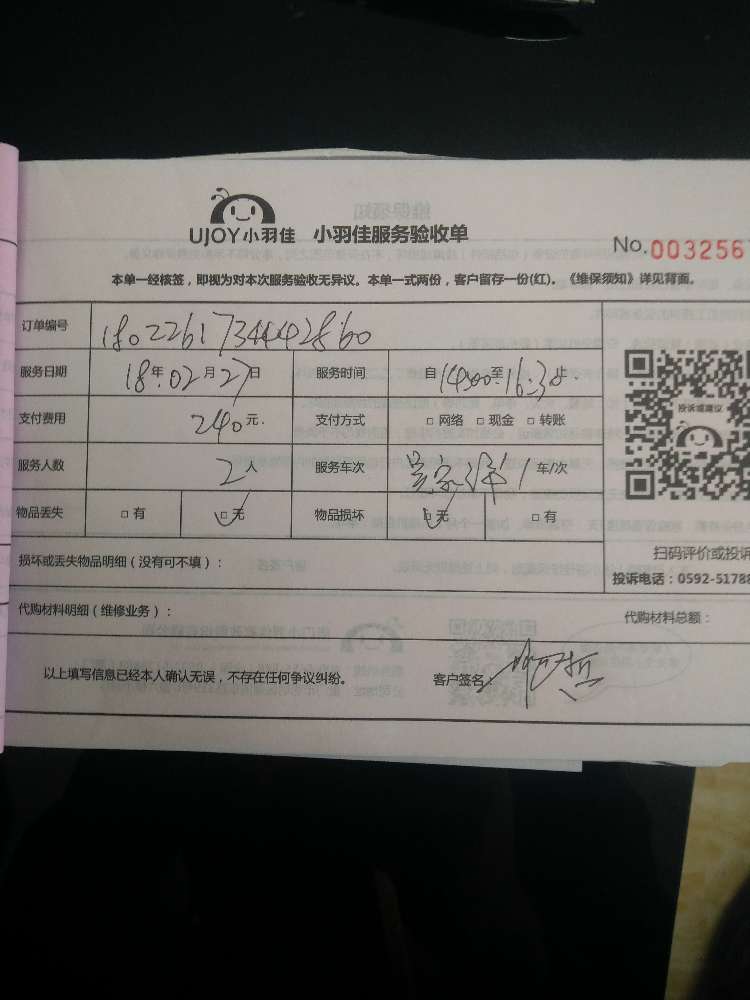 UJOY小羽佳 小羽佳服务验收单
No.0032567
本单一经核签，即视为对本次服务验收无异议。本单一式两份，客户留存一份(红)。《维保须知》详见背面。
订单编号 1802261734442860
服务日期 18年02月27日 服务时间 自14:00至16:30止
支付费用 240元 支付方式 □网络 □现金 □转账
服务人数 2人 服务车次 1车/次
物品丢失 □有 □无 物品损坏 □无 □有
投诉或建议
扫码评价或投诉
损坏或丢失物品明细（没有可不填）：
投诉电话：0592-51788
代购材料明细（维修业务）：
代购材料总额：
以上填写信息已经本人确认无误，不存在任何争议纠纷。 客户签名：